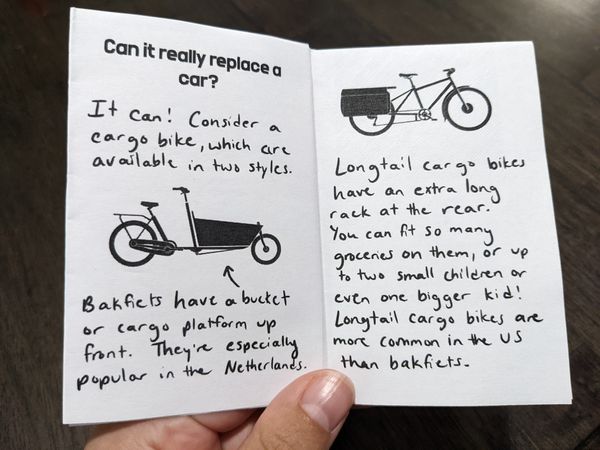 Can it really replace a
car?
It can! Consider a
cargo bike, which are
available in two styles.
Bakfiets have a bucket
or cargo platform up
front. They're especially
popular in the Netherlands.
Longtail cargo bikes
have an extra long
rack at the rear.
You can fit so many
groceries on them, or up
to two small children or
even one bigger kid!
Longtail cargo bikes are
more common in the US
than bakfiets.